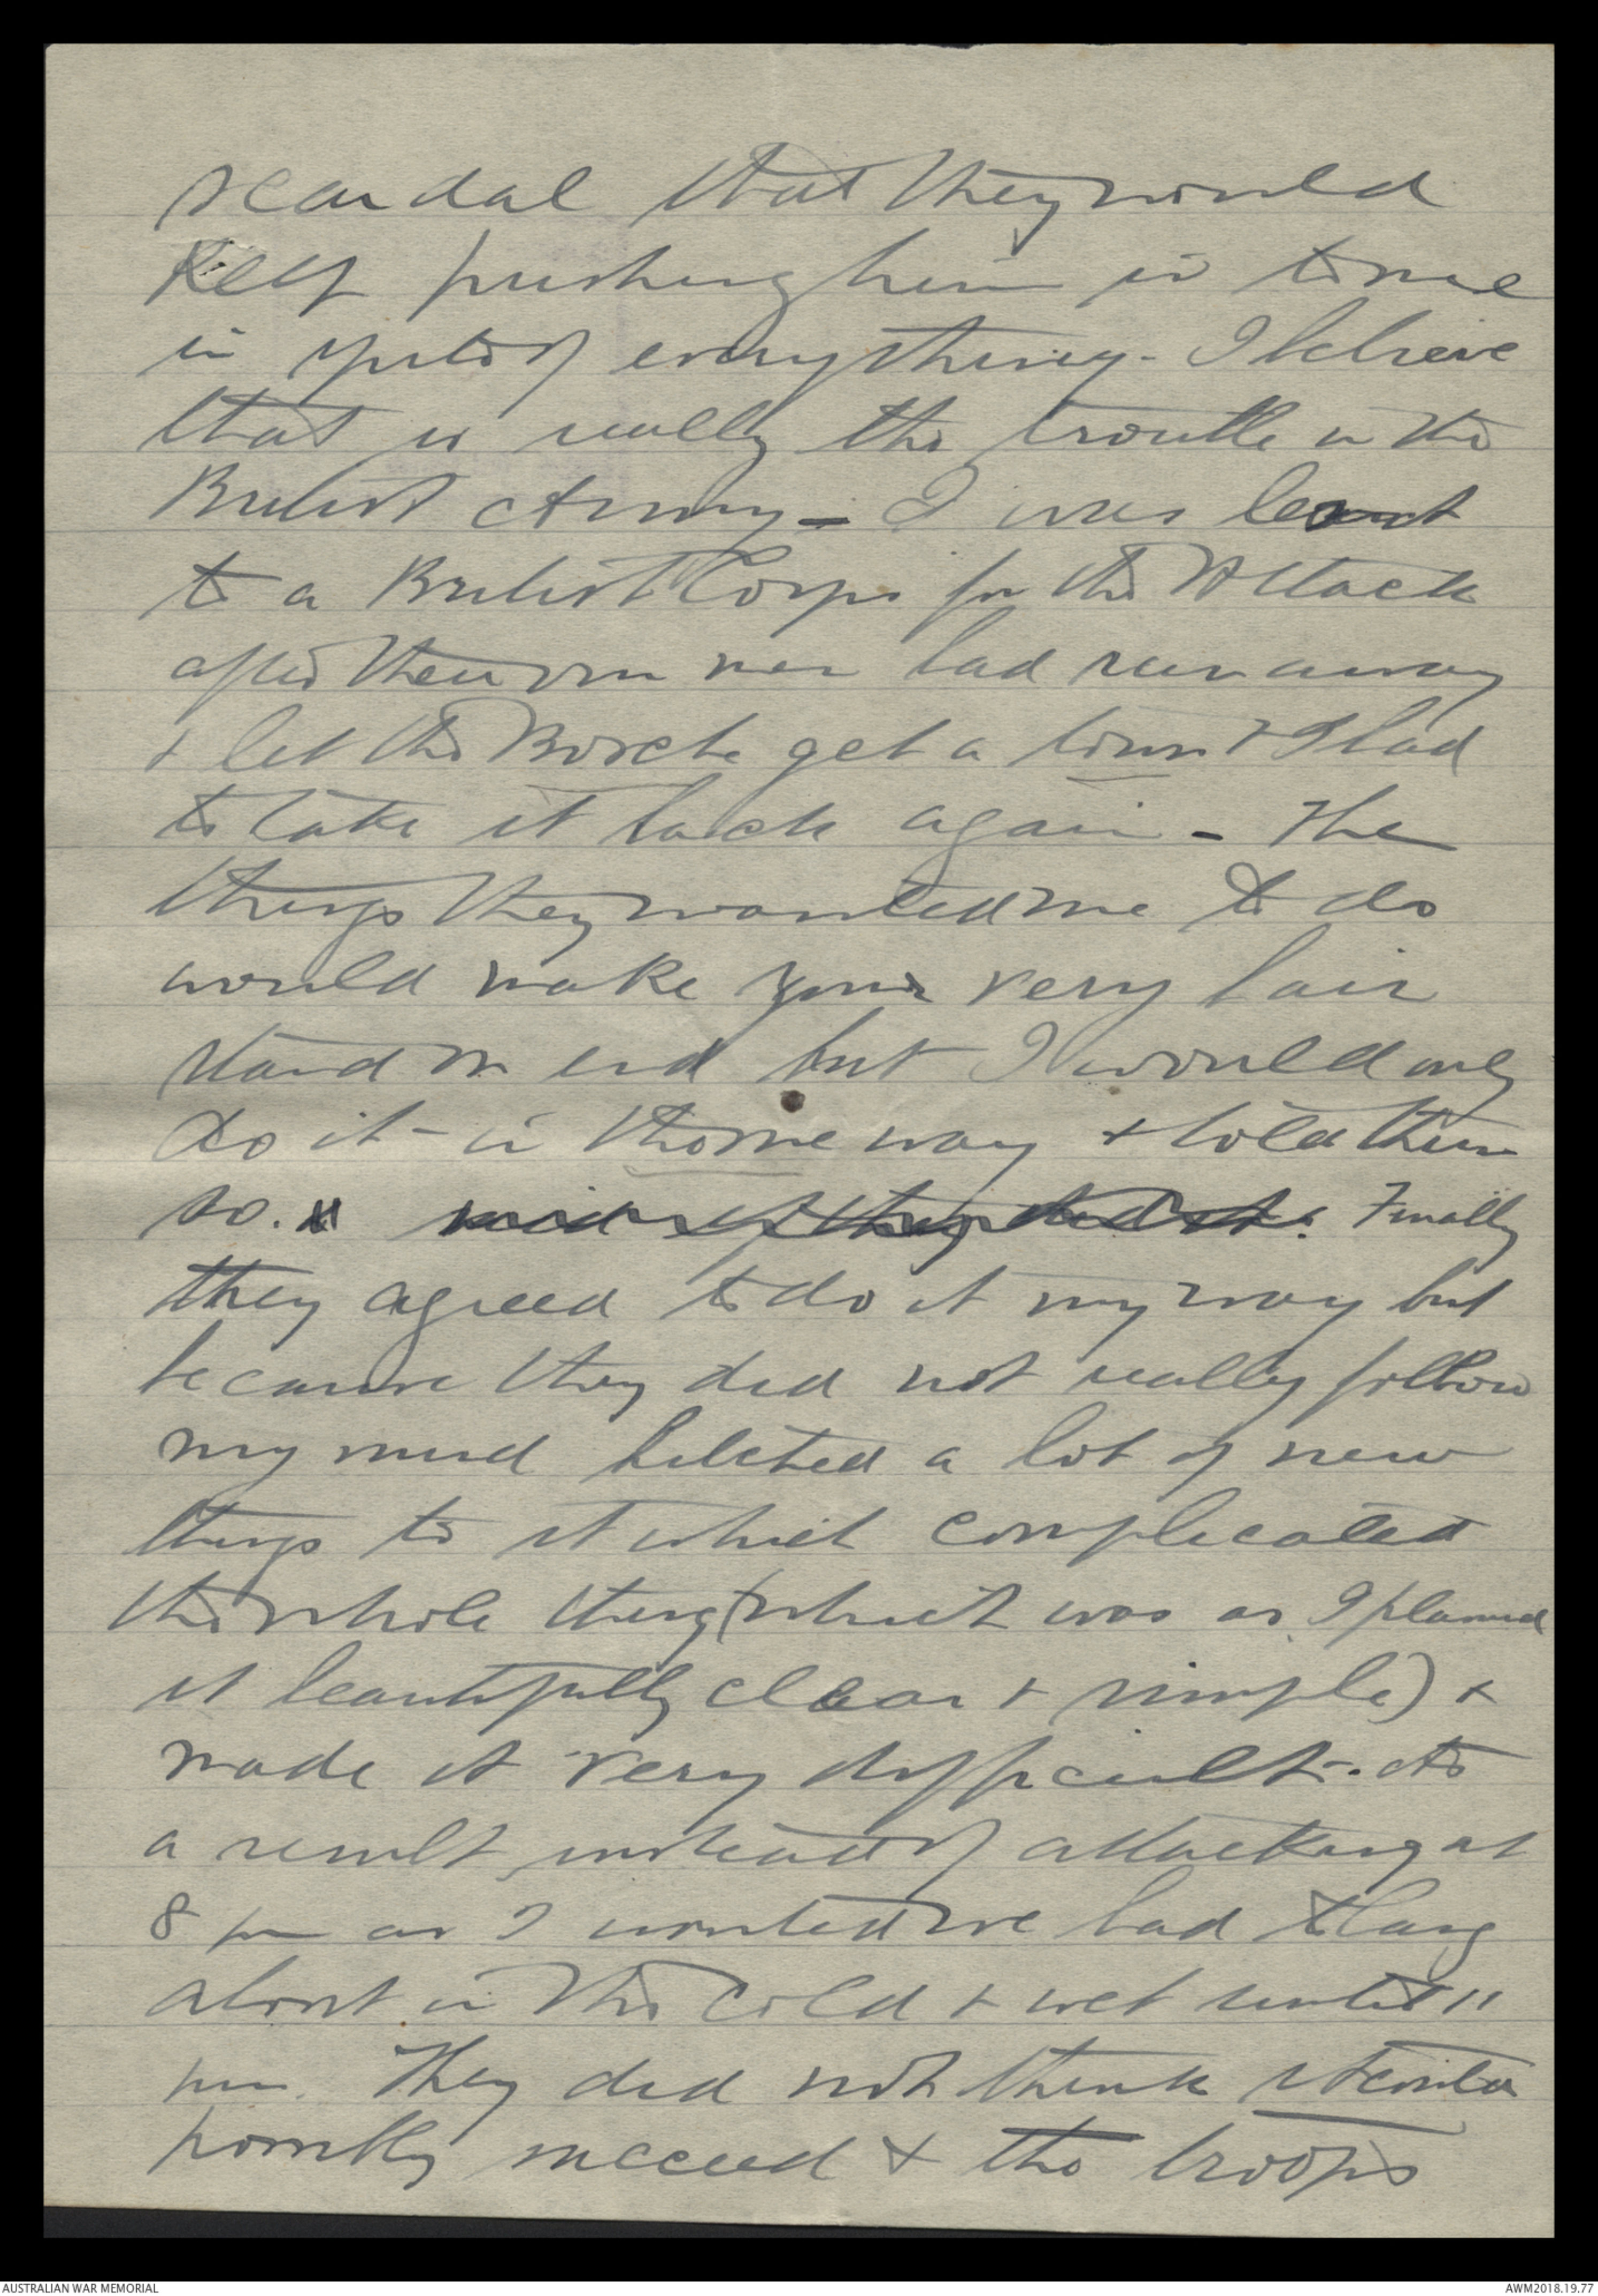 scandal that they would
keep pushing him in to me
in spite of everything - I believe
that is really the trouble in the
British Army - I was lent
to a British Corps for this Attack
after their own men had run away
& let the Bosche get a town & I had
to take it back again - The
things they wanted me to do
would make your very hair
stand on end but I would only
do it - in the one way & told them
so. Finally
they agreed to do it my way but
because they did not really follow
my mind hitched a lot of new
things to it which complicated
the whole thing (which was as I planned
it beautifully clear & simple) &
made it very difficult. As
a result instead of attacking at
8 pm as I wanted we had to hang
about in the cold & wet until 11
pm. They did not think it could
possibly succeed & the troops
AUSTRALIAN WAR MEMORIAL
AWM2018.19.77